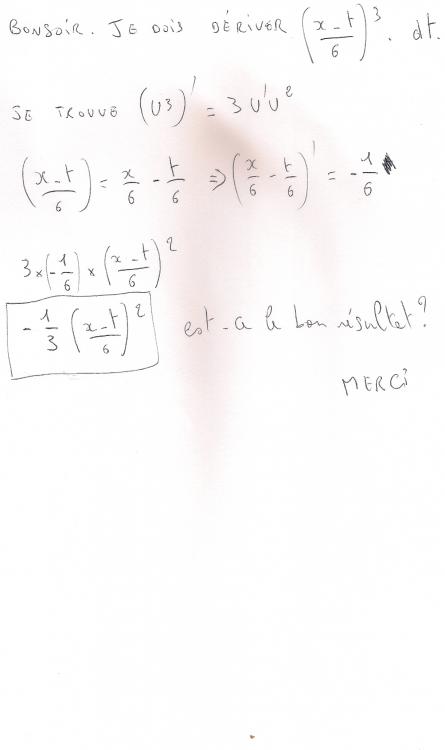 BONSOIR. JE DOIS DÉRIVER (x-t/6)^3. dt.
JE TROUVE (U3)' = 3U'U^2
(x-t/6) = x/6 - t/6 => (x/6 - t/6)' = -1/6
3×(-1/6)×(x-t/6)^2
-1/3 (x-t/6)^2 est-ce le bon résultat?
MERCI